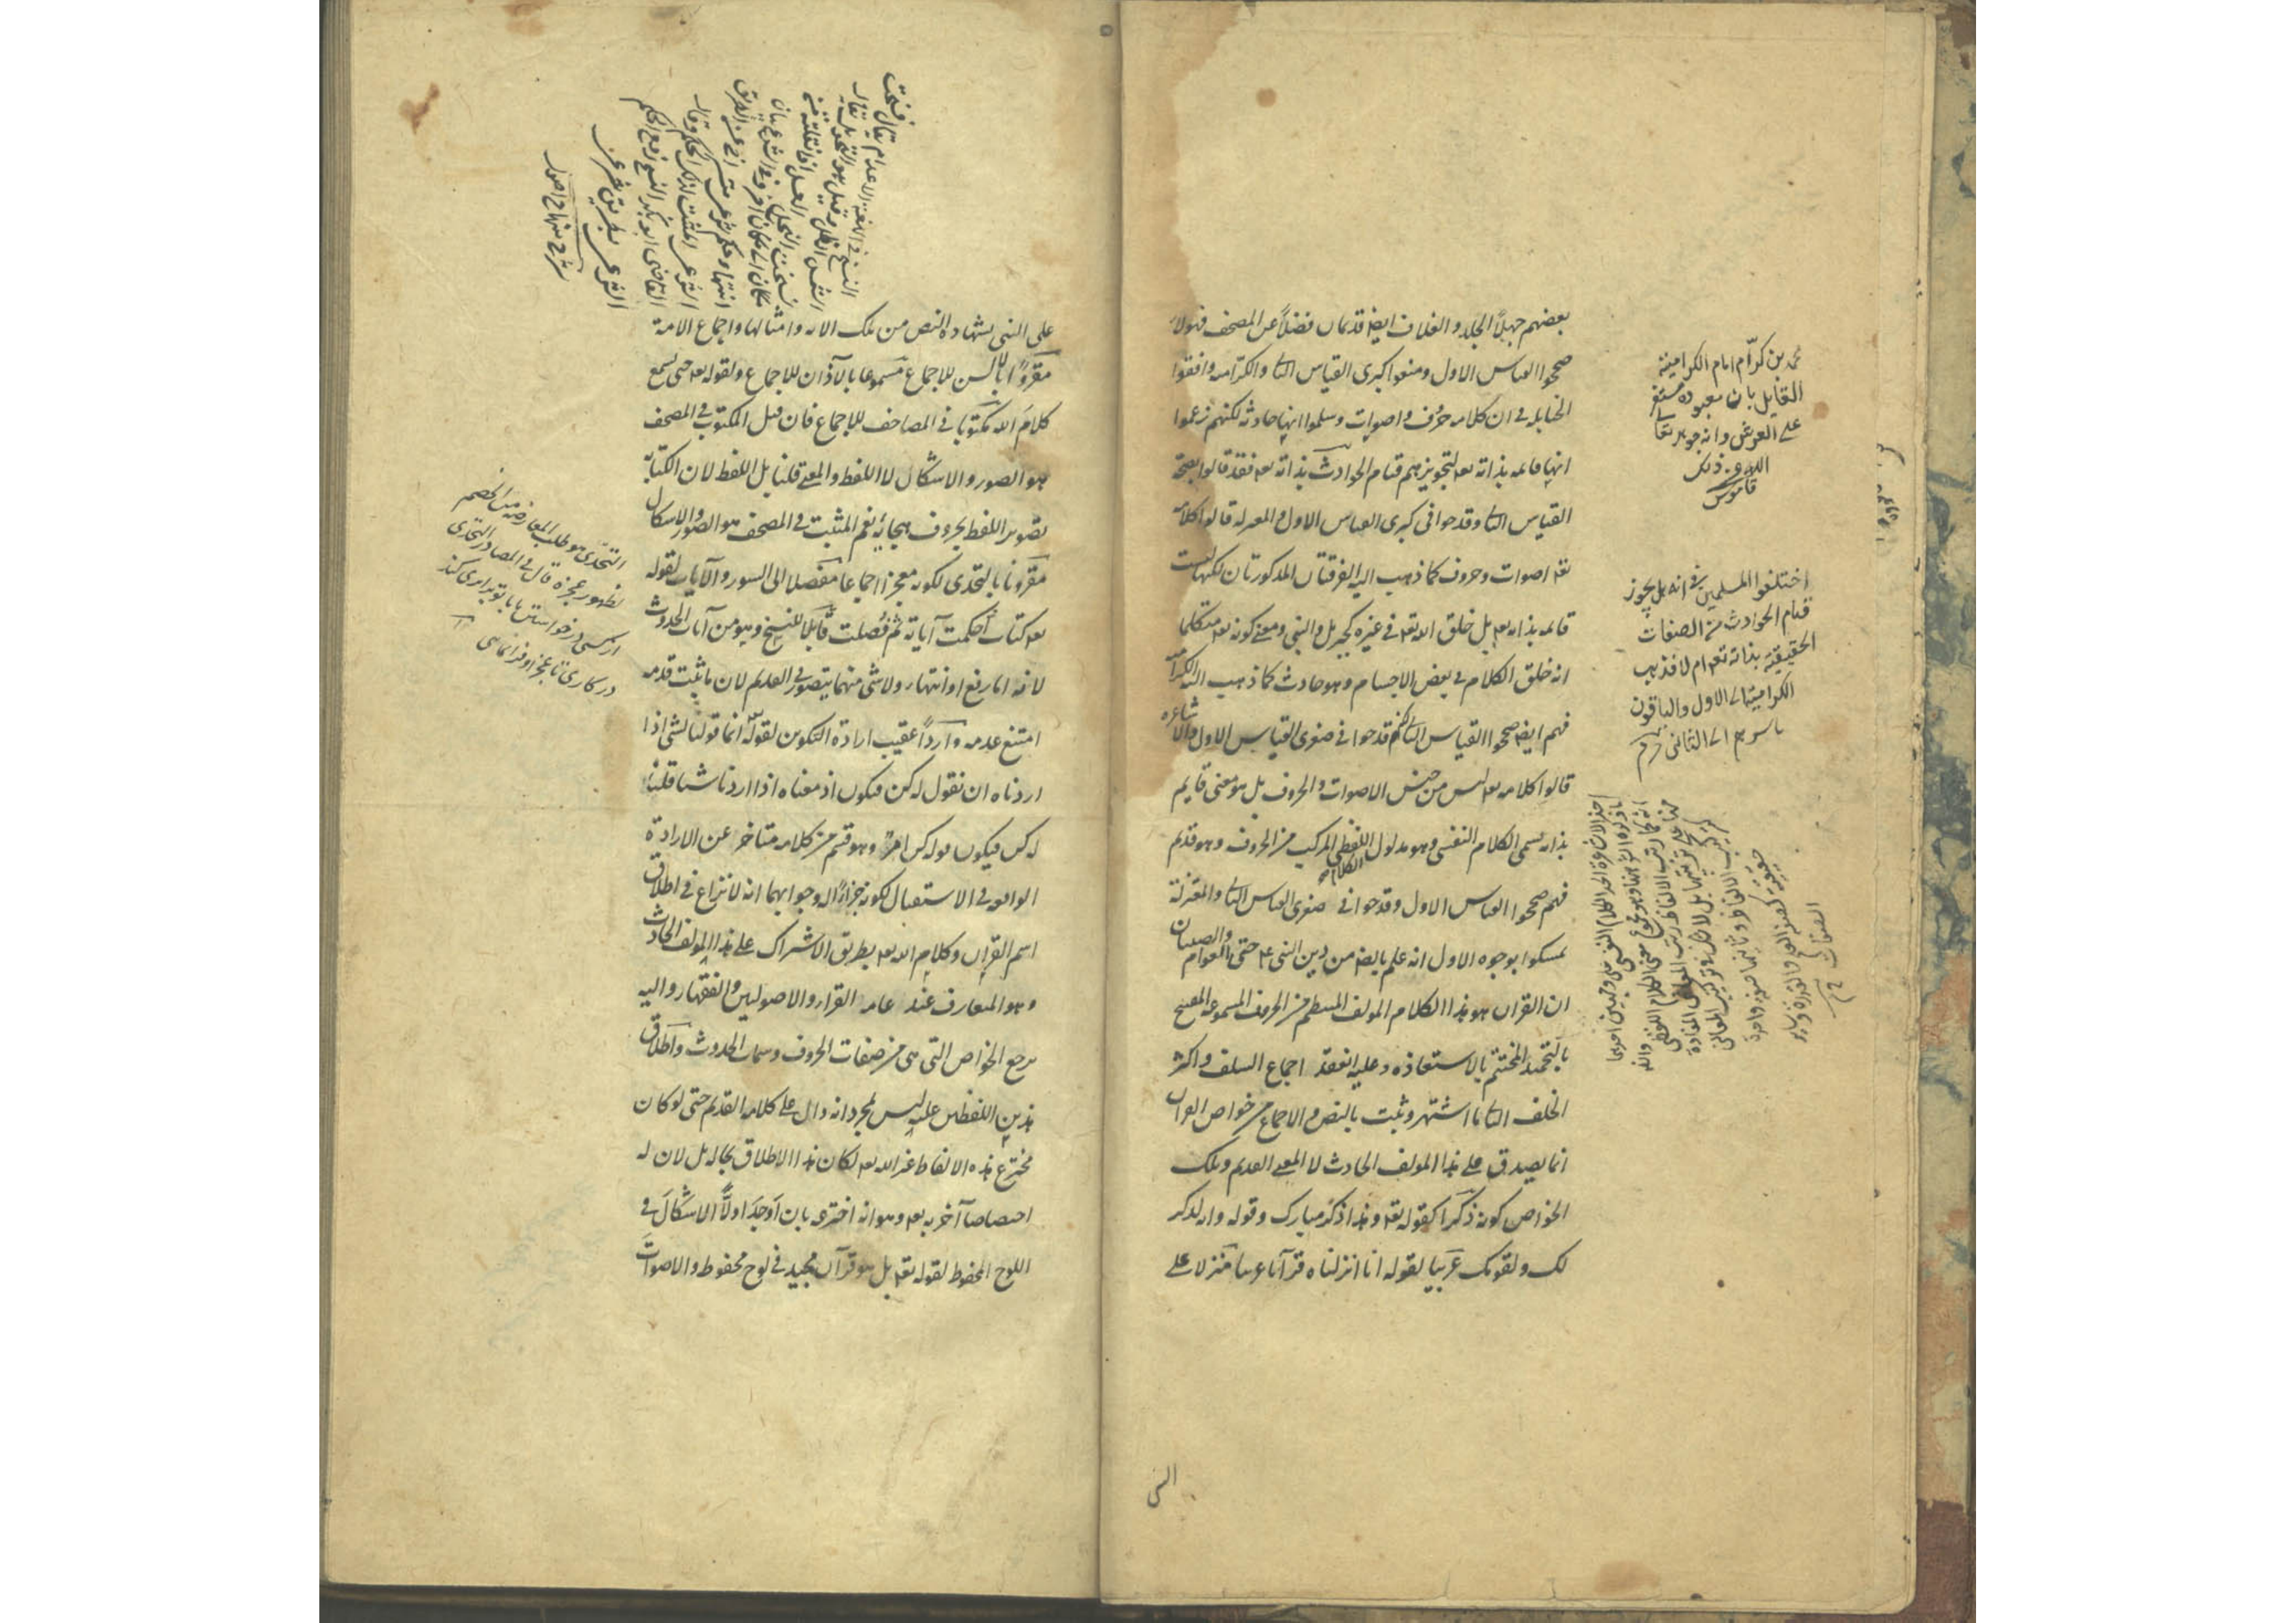 بعضهم جهلاً الجلد والغلاف ايضا قديمان فضلاً عن المصحف فهولاء
صححوا القياس الاول ومنعوا كبرى القياس الثانى والكرامية وافقوا
الحنابلة فى ان كلامه حروف واصوات وسلموا انها حادثة لكنهم زعموا
انها قائمة بذاته تعه لتجويزهم قيام الحوادث بذاته تعه فقد قالوا بصحة
القياس الثانى وقدحوا فى كبرى القياس الاول والمعتزلة قالوا كلامه
تعه اصوات وحروف كما ذهب اليه الفرقتان المذكورتان لكنها ليست
قائمة بذاته تعه بل خلق الله تعه فى غيره كجبريل والنبى ومعنى كونه تعه متكلما
انه خلق الكلام فى بعض الاجسام وهو حادث كما ذهب اليه الكرامية
فهم ايضا صححوا القياس الثانى لكنهم قدحوا فى صغرى القياس الاول والاشاعره
قالوا كلامه تعه ليس من جنس الاصوات والحروف بل هو معنى قايم
بذاته يسمى الكلام النفسى وهو مدلول الكلام اللفظى المركب من الحروف وهو قديم
فهم صححوا القياس الاول وقدحوا فى صغرى القياس الثانى والمعتزلة
تمسكوا بوجوه الاول انه علم بالضه من دين النبى ع حتى العوام والصبيان
ان القران هو هذا الكلام المولف المنتظم من الحروف المسموعة المفتتح
بالتحميد المختتم بالاستعاذه وعليه انعقد اجماع السلف واكثر
الخلف الثانى ما اشتهر وثبت بالنص والاجماع من خواص القران
انما يصدق على هذا المولف الحادث لا المعنى القديم وتلك
الخواص كونه ذكراً كقوله تعه وهذا ذكر مبارك وقوله وانه لذكر
لك ولقومك عربيا لقوله انا انزلناه قرآنا عربيا منزلا على
النبى
محمد بن كرّام امام الكرامية
القايل بان معبوده مستقر
على العرش وانه جوهر تعالى
الله عن ذلك
قاموس
اختلفوا المسلمين فى انه هل يجوز
قيام الحوادث من الصفات
الحقيقية بذاته تعه ام لا فذهب
الكرامية الى الاول والباقون
باسرهم الى الثانى
على النبى بشهادة النص من تلك الايه وامثالها واجماع الامة
مقروّاً بالالسن للاجماع مسموعا بالآذان للاجماع ولقوله تعه حتى يسمع
كلام الله مكتوبا فى المصاحف للاجماع فان قيل المكتوب فى المصحف
هو الصور والاشكال لا اللفظ والمعنى قلنا بل اللفظ لان الكتابة
تصوير اللفظ بحروف هجائه نعم المثبت فى المصحف هو الصور والاشكال
مقرونا بالتحدى لكونه معجزا اجماعا مفصلا الى السور والآيات لقوله
تعه كتاب أحكمت آياته ثم فُصلت قابلاً للنسخ وهو من آيات الحدوث
لانه اما رفع او انتهاء ولا شى منهما يتصور فى القديم لان ما ثبت قدمه
امتنع عدمه وارداً عقيب ارادة التكوين لقوله انما قولنا لشى اذا
اردناه ان نقول له كن فيكون اذ معناه اذا اردنا شيا قلنا
له كن فيكون قوله كن امر وهو قسم من كلامه متاخر عن الارادة
الواقعه فى الاستقبال لكونه جزاءً له وجوابهما انه لا نزاع فى اطلاق
اسم القران وكلام الله تعه بطريق الاشتراك على هذا المولف الحادث
وهو المتعارف عند عامه القراء والاصوليين والفقهاء واليه
يرجع الخواص التى هى من صفات الحروف وسمات الحدوث واطلاق
هذين اللفظين عليه ليس لمجرد انه دال على كلامه القديم حتى لو كان
مخترع هذه الالفاظ غير الله تعه لكان هذا الاطلاق بحاله بل لان له
اختصاصا آخر به تعه وهو انه اخترعه بان اَوجدَ اولاً الاشكال فى
اللوح المحفوظ لقوله تعه بل هو قرآن مجيد فى لوح محفوظ والاصوات
النسخ فى اللغة الاعدام يقال نسخت
الشمس الظل وقيل هو النقل والتحويل يقال
شرح منهاج اصول
التحدى هو طلب المعارضه من الخصم
لظهور عجزه قال فى المصادر التحدى